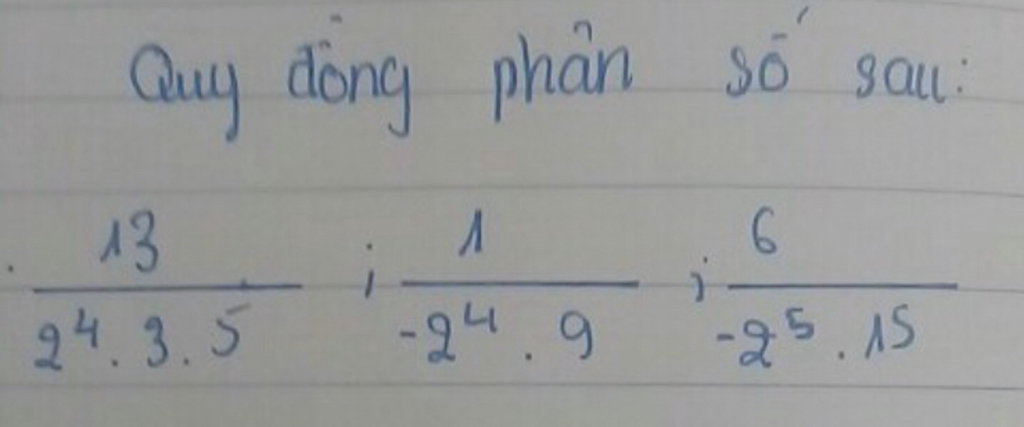 Quy đồng phân số sau:
13 / 2⁴ . 3 . 5 ; 1 / -2⁴ . 9 ; 6 / -2⁵ . 15